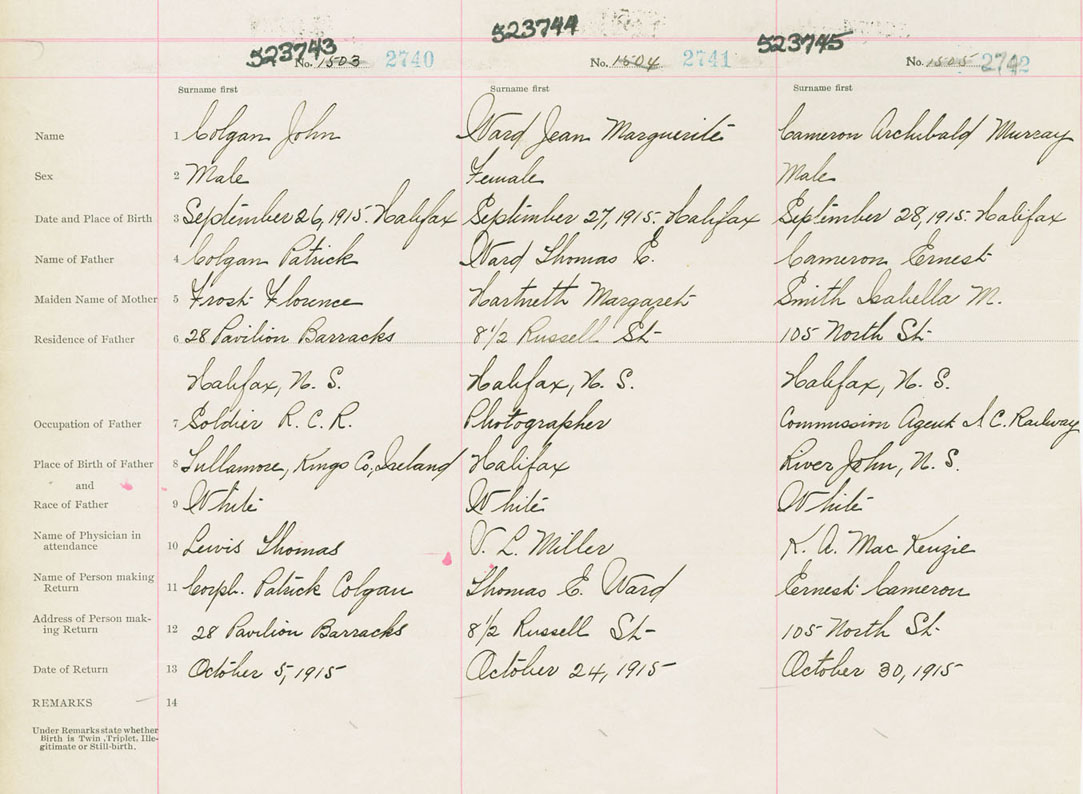 523743 523744 523745
No. 1503 2740 No. 1504 2741 No. 1505 2742
Surname first Surname first Surname first
Name 1 Colgan John Ward Jean Marguerite Cameron Archibald Murray
Sex 2 Male Female Male
Date and Place of Birth 3 September 26, 1915. Halifax September 27, 1915. Halifax September 28, 1915. Halifax
Name of Father 4 Colgan Patrick Ward Thomas E. Cameron Ernest
Maiden Name of Mother 5 Frost Florence Hartnett Margaret Smith Isabella M.
Residence of Father 6 28 Pavilion Barracks 8 1/2 Russell St- 105 North St-
Halifax, N. S. Halifax, N. S. Halifax, N. S.
Occupation of Father 7 Soldier R. C. R. Photographer Commission Agent I. C. Railway
Place of Birth of Father 8 Tullamore, Kings Co, Ireland Halifax River John, N. S.
and
Race of Father 9 White White White
Name of Physician in
attendance 10 Lewis Thomas V. L. Miller K. A. MacKenzie
Name of Person making
Return 11 Corpl. Patrick Colgan Thomas E. Ward Ernest Cameron
Address of Person mak-
ing Return 12 28 Pavilion Barracks 8 1/2 Russell St- 105 North St-
Date of Return 13 October 5, 1915 October 24, 1915 October 30, 1915
REMARKS 14
Under Remarks state whether
Birth is Twin, Triplet, Ille-
gitimate or Still-birth.